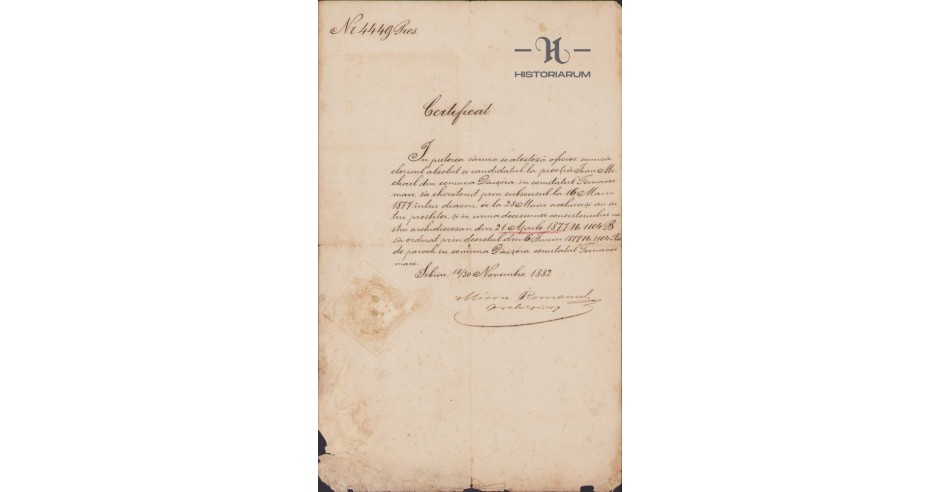 Nr 4449 Pres
H
HISTORIARUM
Certificat
In puterea căruia se atesteză oficios, cumcă
clericul absolut și candidatul la preoția Ioan Mi
chail din comuna in comitatul
mare, s'a chirotonit prin subsemnatul la 16 Maiu
1877 intru diacon, er la 28 Maiu acelasi an in
tru presbiter, și in urma decisiunei consistoriului no
stru archidiecesan din 21 Aprile 1877 Nr. 1104 B
s'a ordinat prin decretul din 6 Iuniu 1877 Nr. 1104
de paroch in comuna comitatul
mare.
Sibiiu, 18/30 Novembre 1882
Miron Romanul